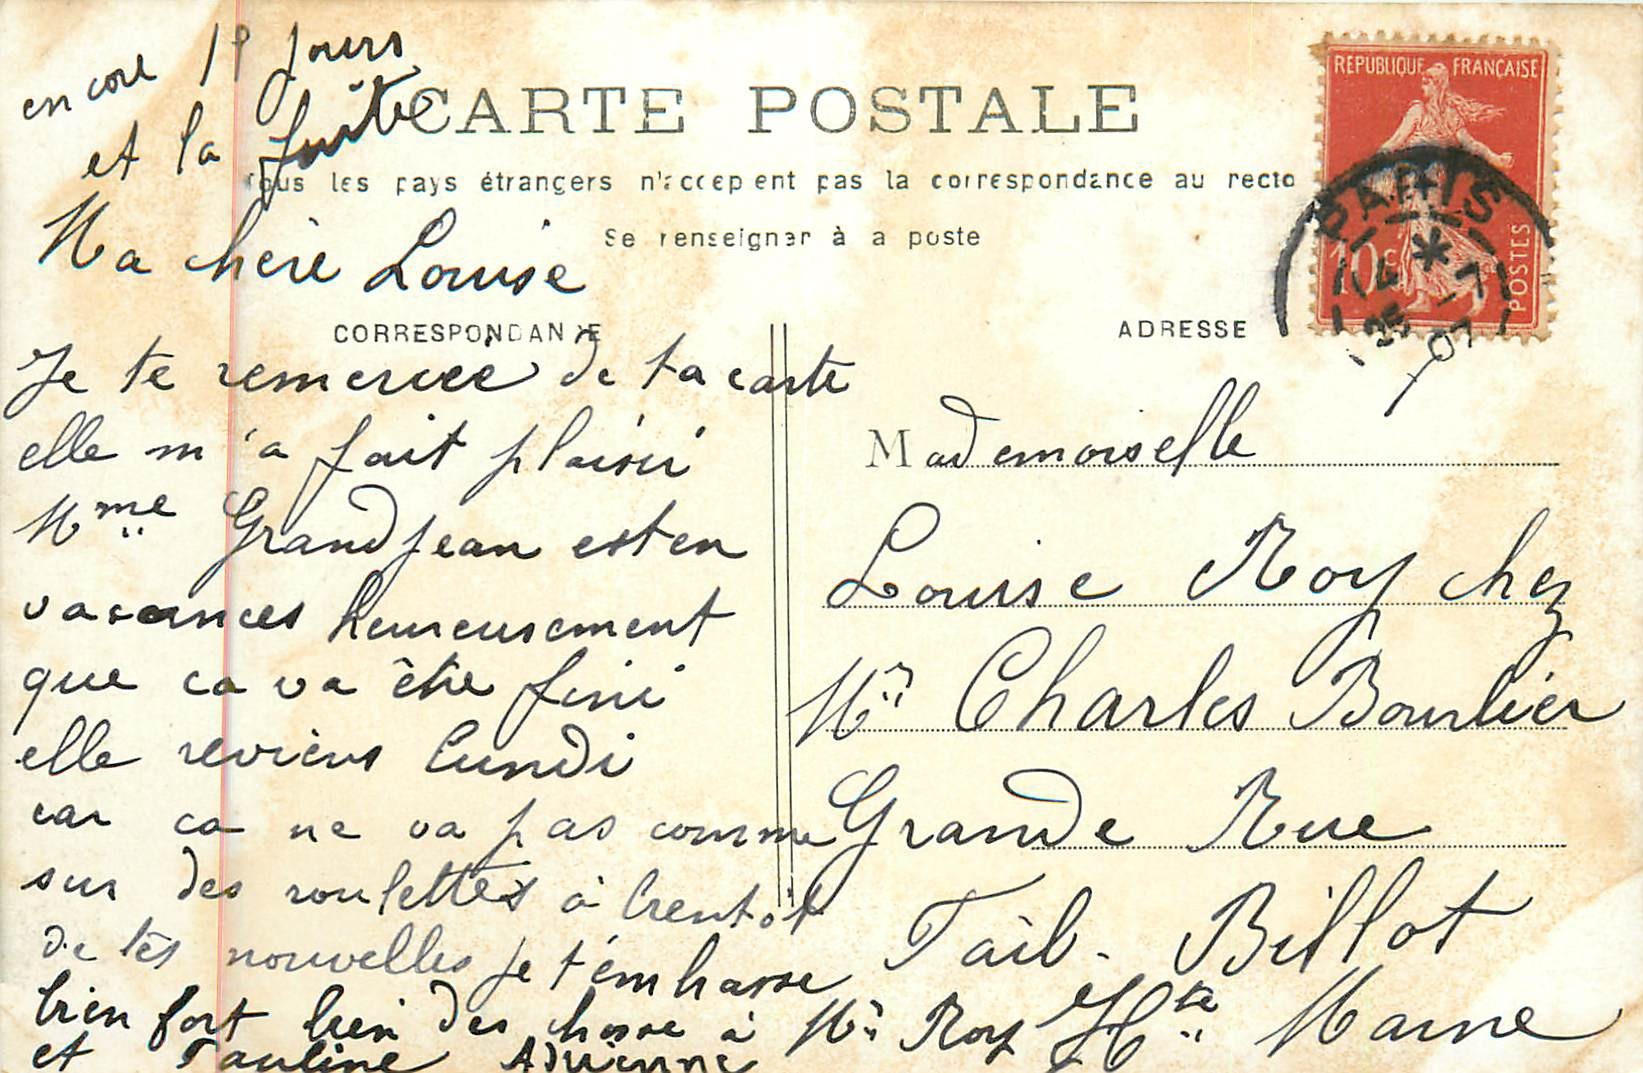 encore 19 jours
et la fuite
CARTE POSTALE
Tous les pays étrangers n'acceptent pas la correspondance au recto
Se renseigner à la poste
REPUBLIQUE FRANÇAISE
10c
POSTES
PARIS
25 -7
07
Ma chère Louise
CORRESPONDANCE
Je te remercee de ta carte
elle m'a fait plaisir
Mme Grandjean est en
vacances heureusement
que ca va être fini
elle reviens lundi
car ca ne va pas comme
sur des roulettes à bientôt
de tes nouvelles je t'embrasse
bien fort bien des chose à Mr Roy
et Pauline Adrienne
ADRESSE
Mademoiselle
Louise Roy chez
Mr Charles Bourlier
Grande Rue
Fail-Billot
Hte Marne